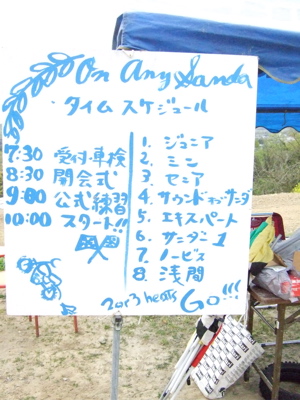 On Any Sanda
・タイムスケジュール
7:30 受付・車検
8:30 開会式
9:00 公式練習
10:00 スタート!!
1. ジュニア
2. ミニ
3. セニア
4. サウンドオブサンダ
5. エキスパート
6. サニダン1
7. ノービス
8. 浅間
2or3 heats GO!!!